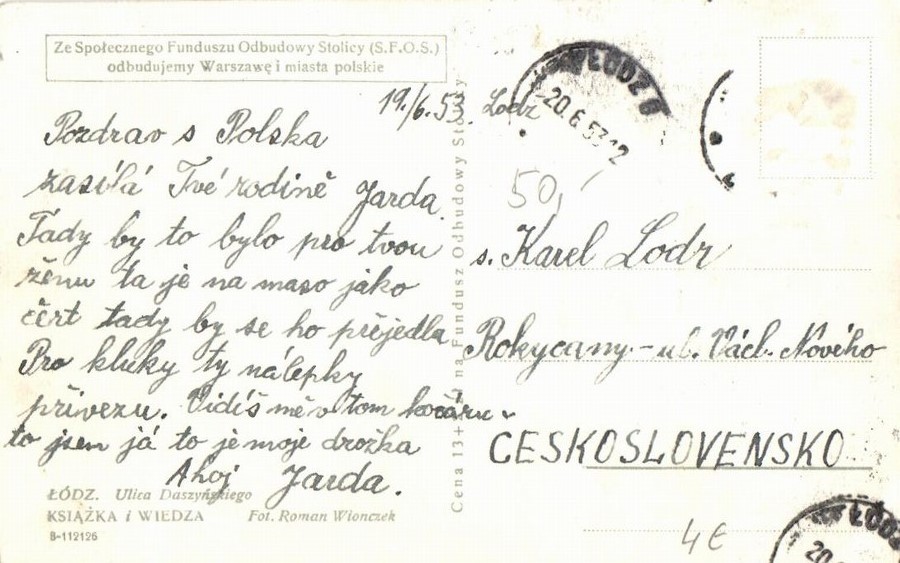 Ze Społecznego Funduszu Odbudowy Stolicy (S.F.O.S.)
odbudujemy Warszawę i miasta polskie
19./6.53. Lodz
Pozdrav s Polska
zasílá Tvé rodině Jarda.
Tády by to bylo pro tvou
ženu ta je na maso jako
čert tady by se ho přejedla
Pro kluky ty nálepky
přivezu. Vidíš mě v tom kočáru
to jsem já to je moje drožka
Ahoj Jarda.
ŁÓDZ. Ulica Daszyńskiego
KSIĄŻKA i WIEDZA Fot. Roman Wionczek
B-112126
Cena 13+ na Fundusz Odbudowy Stolicy
ŁÓDŹ 6
20.6.53-12
50,
s. Karel Lodr
Rokycany - ul. Václ. Nového
CESKOSLOVENSKO
4€
ŁÓDŹ
20.